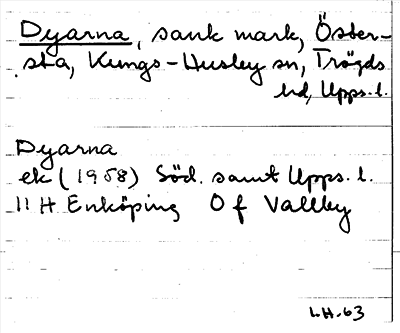 Dyarna, sank mark, Öster-
sta, Kungs-Husby sn, Trögds
hd, Upps. l.
Dyarna
ek (1958) Söd. samt Upps. l.
11 H Enköping O f Vallby
L.H.-63